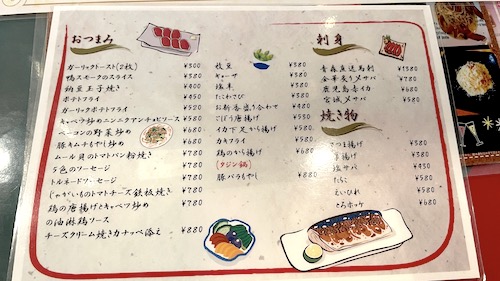 おつまみ
ガーリックトースト(2枚) ¥300
鴨スモークのスライス ¥380
納豆玉子焼き ¥400
ポテトフライ ¥450
ガーリックポテトフライ ¥520
キャベツ炒めニンニクアンチョビソース ¥580
ベーコンの野菜炒め ¥680
豚キムチもやし炒め ¥680
ムール貝のトマトパン粉焼き ¥780
5色のソーセージ ¥780
トルネードソーセージ ¥780
じゃがいものトマトチーズ鉄板焼き ¥780
鶏の唐揚げとキャベツ炒め
の油淋鶏ソース ¥780
チーズクリーム焼きカナッペ添え ¥880
枝豆 ¥380
ギョーザ ¥380
塩辛 ¥380
たこわさび ¥380
お新香盛り合わせ ¥480
ごぼう唐揚げ ¥530
イカ下足から揚げ ¥580
カキフライ ¥580
鶏のから揚げ ¥680
(タジン鍋)
豚バラもやし ¥680
刺身
青森直送馬刺 ¥580
金華炙り〆サバ ¥580
鹿児島赤イカ ¥680
宮城〆サバ ¥580
焼き物
さつま揚げ ¥380
揚げ ¥380
塩サバ ¥430
たらこ ¥580
えいひれ ¥580
とろホッケ ¥680